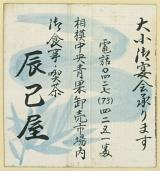 大小御宴会承ります
電話四二七(73)四二五一番
相模中央青果卸売市場内
御食事・喫茶
辰巳屋